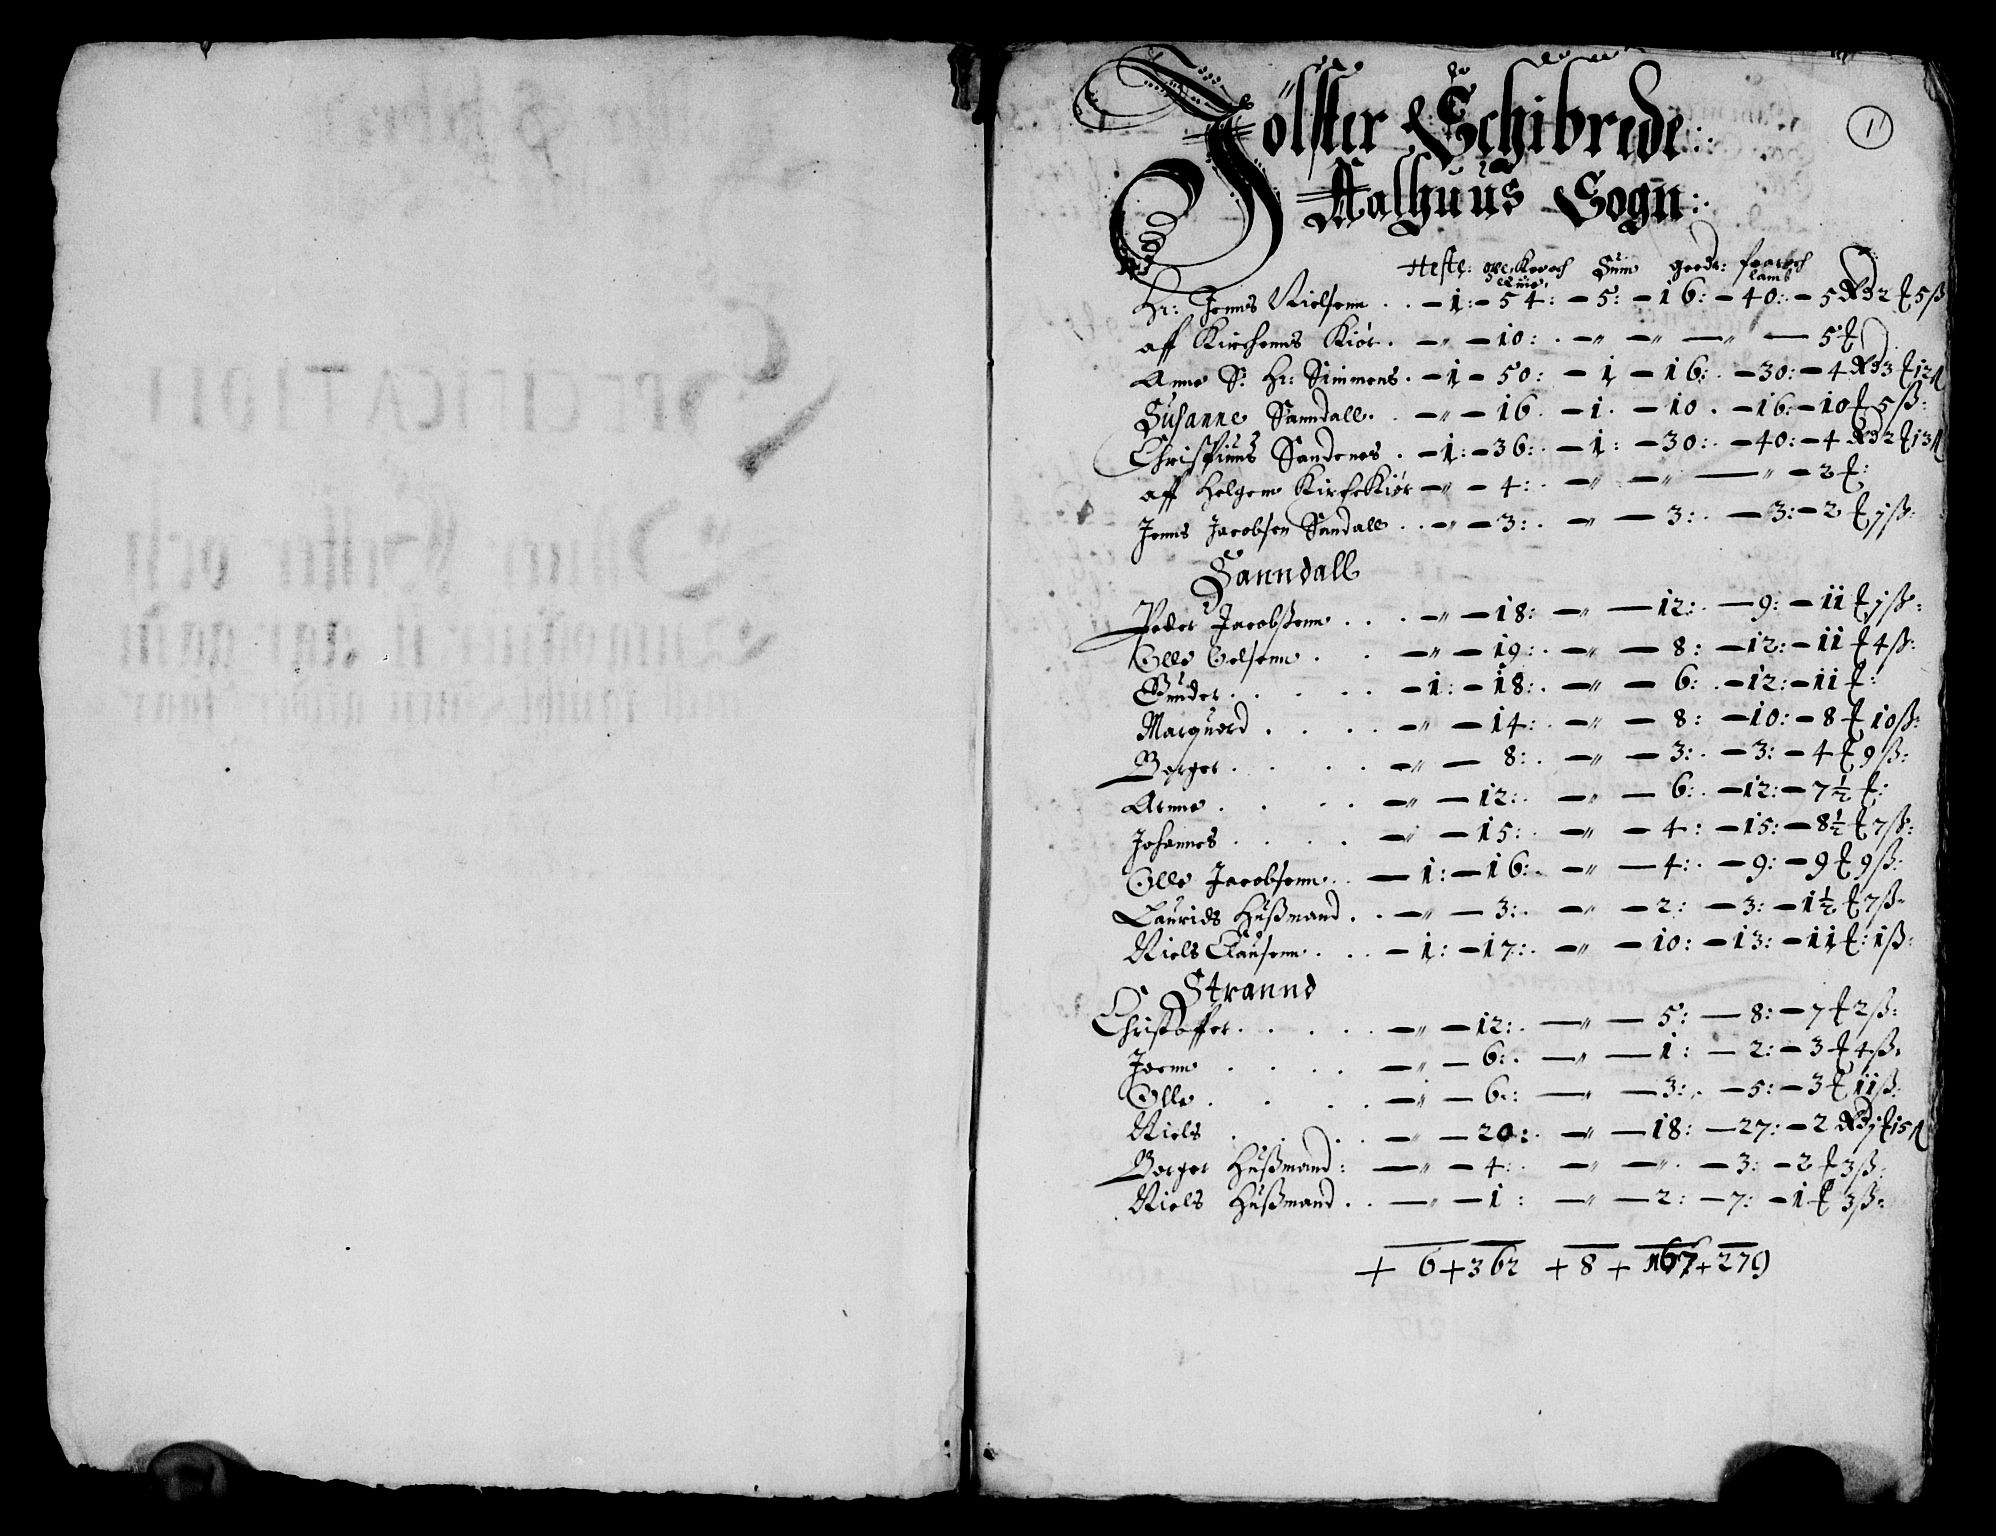 1
Jölster Schibrede:
Aalhuus Sogn:
Heste: Kør och Suin geeder: faar och
lamb
Hr: Jenns Nielsenn . . - 1: - 54: - 5: - 16: - 40: - 5 Rd 2 ₤ 5 ß
aff Kirchenns Kiør . - " - 10: . - " - " - " - 5 ₤
Anne S. Hr: Simmens . - 1 - 50: - 1 - 16: - 30: - 4 Rd 3 ₤ 12 ß
Susanne Sanndall . - " - 16 . - 1 . - 10 . - 16: - 10 ₤ 5 ß:
Christiuns Sandenes . - 1: - 36: - 1: - 30: - 40: - 4 Rd 2 ₤ 13 ß
aff Helgem Kirke Kiør - " - 4: . - " - " - " - 2 ₤:
Jenns Jacobsen Sandall . . - " - 3: . - " - 3: . - 3: - 2 ₤ 1 ß:
Sanndall
Peder Jacobßenn . . . - " - 18: - " - 12: . - 9: - 11 ₤ 1 ß:
Olle Oelsenn . . - " - 19: . - " - 8: - 12: - 11 ₤ 4 ß:
Gunder . . . . . - 1: - 18: . - " - 6: . - 12: - 11 ₤:
Marquerd . . . . - " - 14: . - " - 8: - 10: - 8 ₤ 10 ß:
Børger . . . . - " - 8: . - " - 3: . - 3: - 4 ₤ 9 ß:
Arnne . . . . - " - 12: . - " - 6: . - 12: - 7½ ₤:
Johannes . . . . - " - 15: . - " - 4: - 15: - 8½ ₤ 7 ß:
Olle Jacobsenn . . - 1: - 16: . - " - 4: . - 9: - 9 ₤ 9 ß:
Laurids Hußmand . . - " - 3: . - " - 2: - 3: - 1½ ₤ 7 ß
Niels Clausenn . . . - 1: - 17: . - " - 10: - 13: - 11 ₤: 1 ß:
Strannd
Christoffer . . . . . - " - 12: . - " - 5: - 8: - 7 ₤ 2 ß:
Joenn . . . . - " - 6: . - " - 1: - 2: - 3 ₤ 4 ß:
Olle . . . . - " - 6: - " - 3: . - 5: - 3 ₤ 11 ß:
Niels . . . . - " - 20: . - " - 18: - 27: - 2 Rd 1 ₤ 15 ß
Børger Hußmand: - " - 4: . - " - " . - 3: - 2 ₤ 3 ß:
Niels Hußmand . . - " - 1: - " - 2: - 7: - 1 ₤ 3 ß:
+ 6 + 362 + 8 + 167 + 279